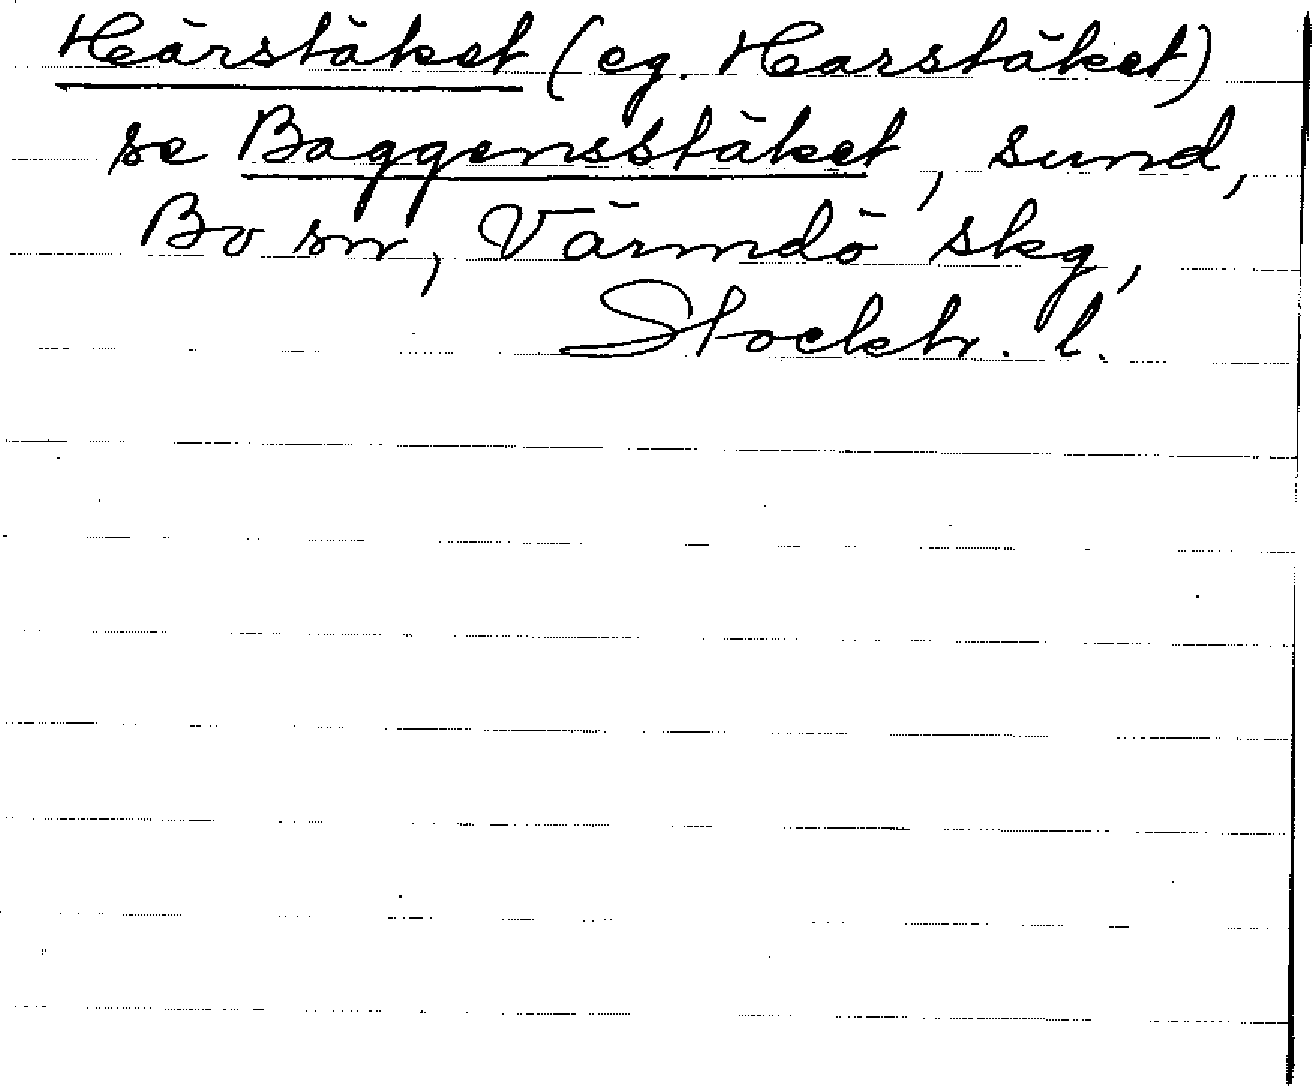 Härstäket (eg. Harstäket)
se Baggensstäket, sund,
Bo sn, Värmdö skg,
Stockh. l.